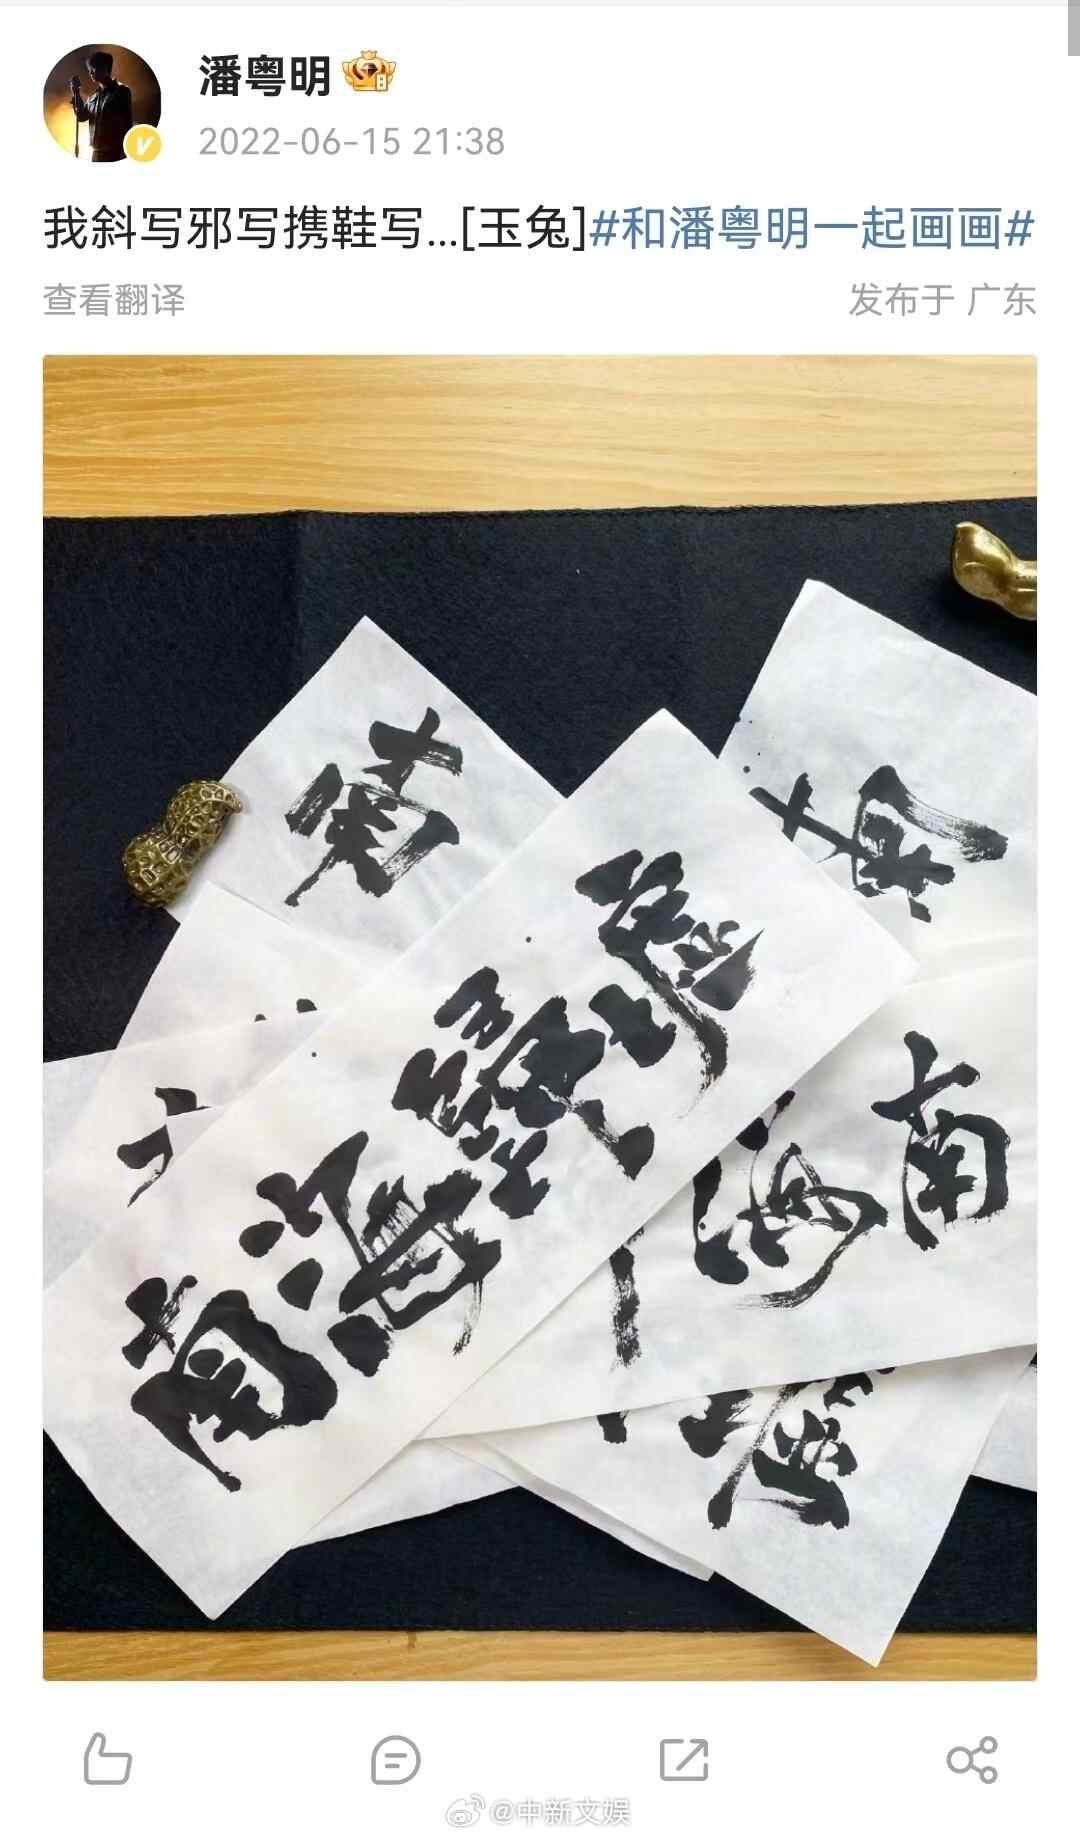 潘粤明
2022-06-15 21:38
我斜写邪写携鞋写...[玉兔]#和潘粤明一起画画#
查看翻译
发布于 广东
南
南
南海歸墟
南海
墟
@中新文娱